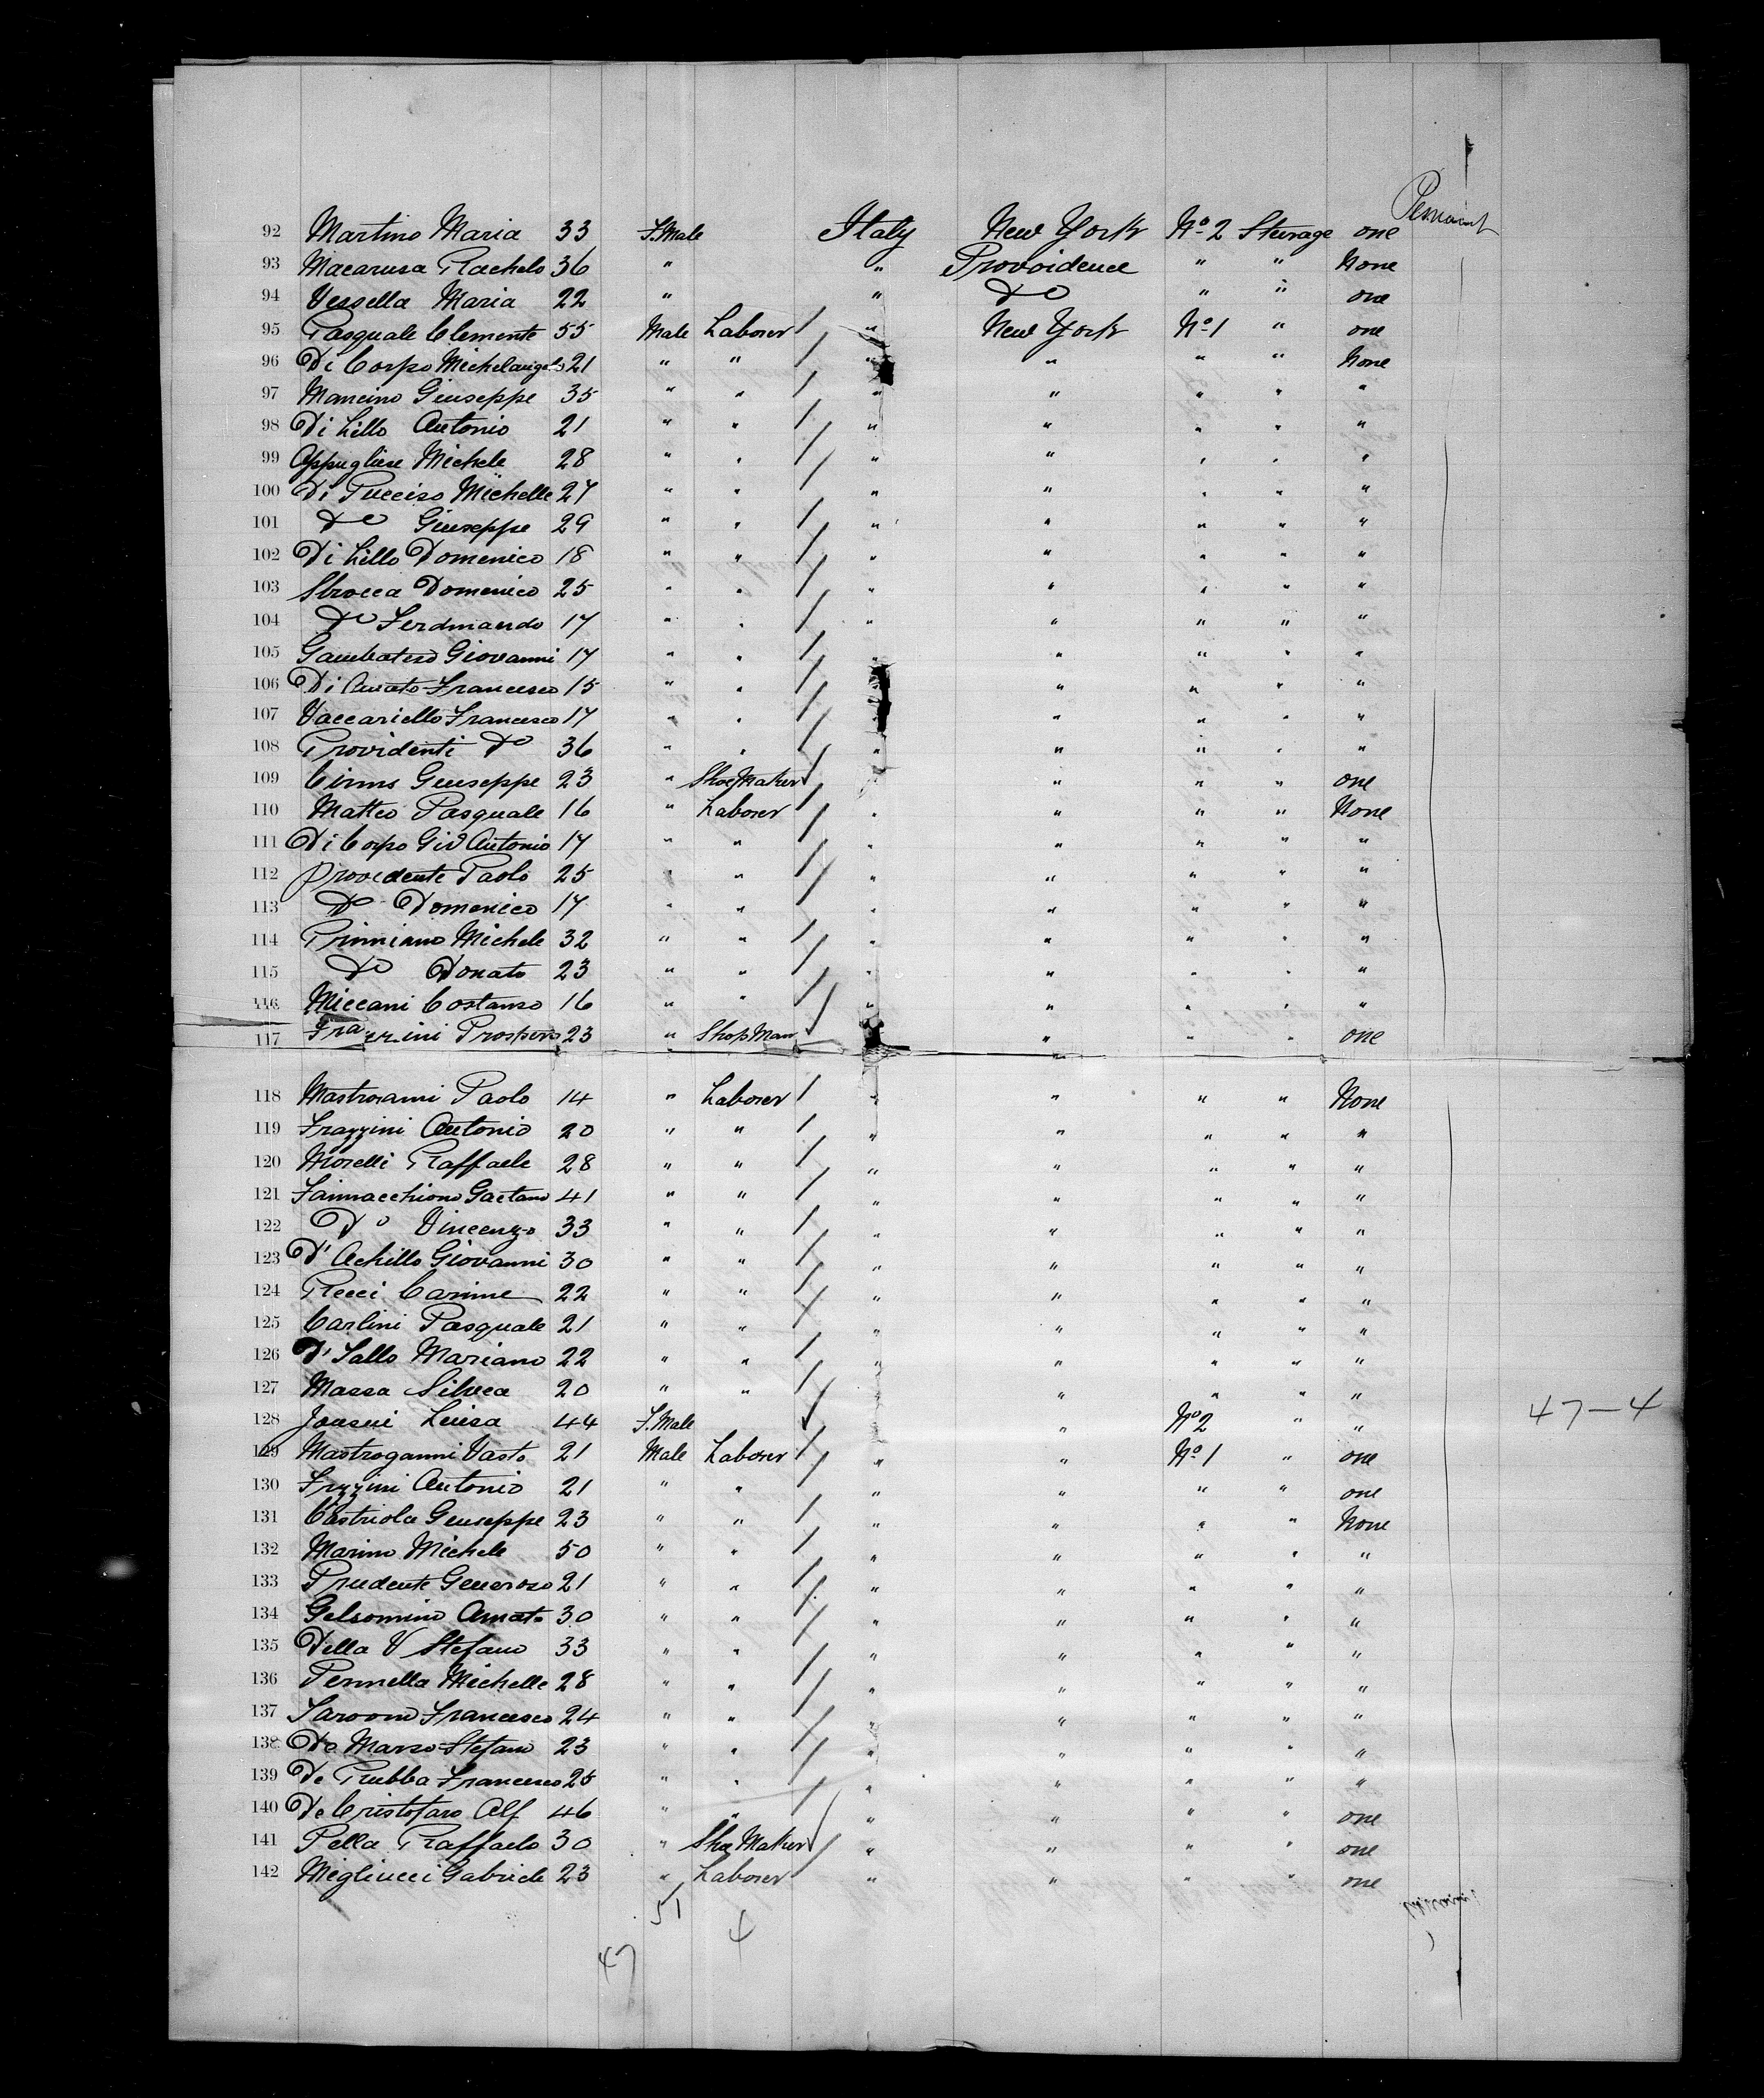 Permanent
92 Martino Maria 33 F.Male Italy New York No 2 Steerage one
93 Macarusa Rachele 36 " " Provoidence " " None
94 Vessella Maria 22 " " Do " " one
95 Pasquale Clemente 55 Male Laborer " New York No 1 " one
96 Di Corpo Michelangelo 21 " " " " " " None
97 Mancino Giuseppe 35 " " " " " " "
98 Di Lillo Antonio 21 " " " " " " "
99 Appugliese Michele 28 " " " " " " "
100 Di Puccizo Michelle 27 " " " " " " "
101 Do Giuseppe 29 " " " " " " "
102 Di Lillo Domenico 18 " " " " " " "
103 Sbrocca Domenico 25 " " " " " " "
104 Do Ferdinando 17 " " " " " " "
105 Gambatero Giovanni 17 " " " " " " "
106 Di Amato Francesco 15 " " " " " " "
107 Vaccariello Francesco 17 " " " " " " "
108 Providenti Do 36 " " " " " " "
109 Cirms Giuseppe 23 " ShoeMaker " " " " one
110 Matteo Pasquale 16 " Laborer " " " " None
111 Di Corpo Gio Antonio 17 " " " " " " "
112 Providente Paolo 25 " " " " " " "
113 Do Domenico 17 " " " " " " "
114 Primiano Michele 32 " " " " " " "
115 Do Donato 23 " " " " " " "
116 Miccani Costanzo 16 " " " " " " "
117 Frazzini Prospero 23 " ShopMan " " " " one
118 Mastroianni Paolo 14 " Laborer " " " " None
119 Frazzini Antonio 20 " " " " " " "
120 Morelli Raffaele 28 " " " " " " "
121 Iannacchione Gaetano 41 " " " " " " "
122 Do Vincenzo 33 " " " " " " "
123 D'Achillo Giovanni 30 " " " " " " "
124 Ricci Carmine 22 " " " " " " "
125 Carlini Pasquale 21 " " " " " " "
126 D'Iallo Mariano 22 " " " " " " "
127 Massa Silveca 20 " " " " " " "
128 Luisa 44 F.Male " No 2 " " 47-4
129 Mastroganni Vasto 21 Male Laborer " " No 1 " one
130 Frzzini Antonio 21 " " " " " " one
131 Castriola Giuseppe 23 " " " " " " None
132 Marino Michele 50 " " " " " " "
133 Prudente Generoso 21 " " " " " " "
134 Gelsomino Amato 30 " " " " " " "
135 Della V Stefano 33 " " " " " " "
136 Pennella Michelle 28 " " " " " " "
137 Francesco 24 " " " " " " "
138 De Marzo Stefano 23 " " " " " " "
139 De Rubba Francesco 25 " " " " " " "
140 De Cristofaro Alf 46 " " " " " " one
141 Pella Raffaelo 30 " Shoe Maker " " " " one
142 Migliucci Gabriele 23 " Laborer " " " " one
51
4
47